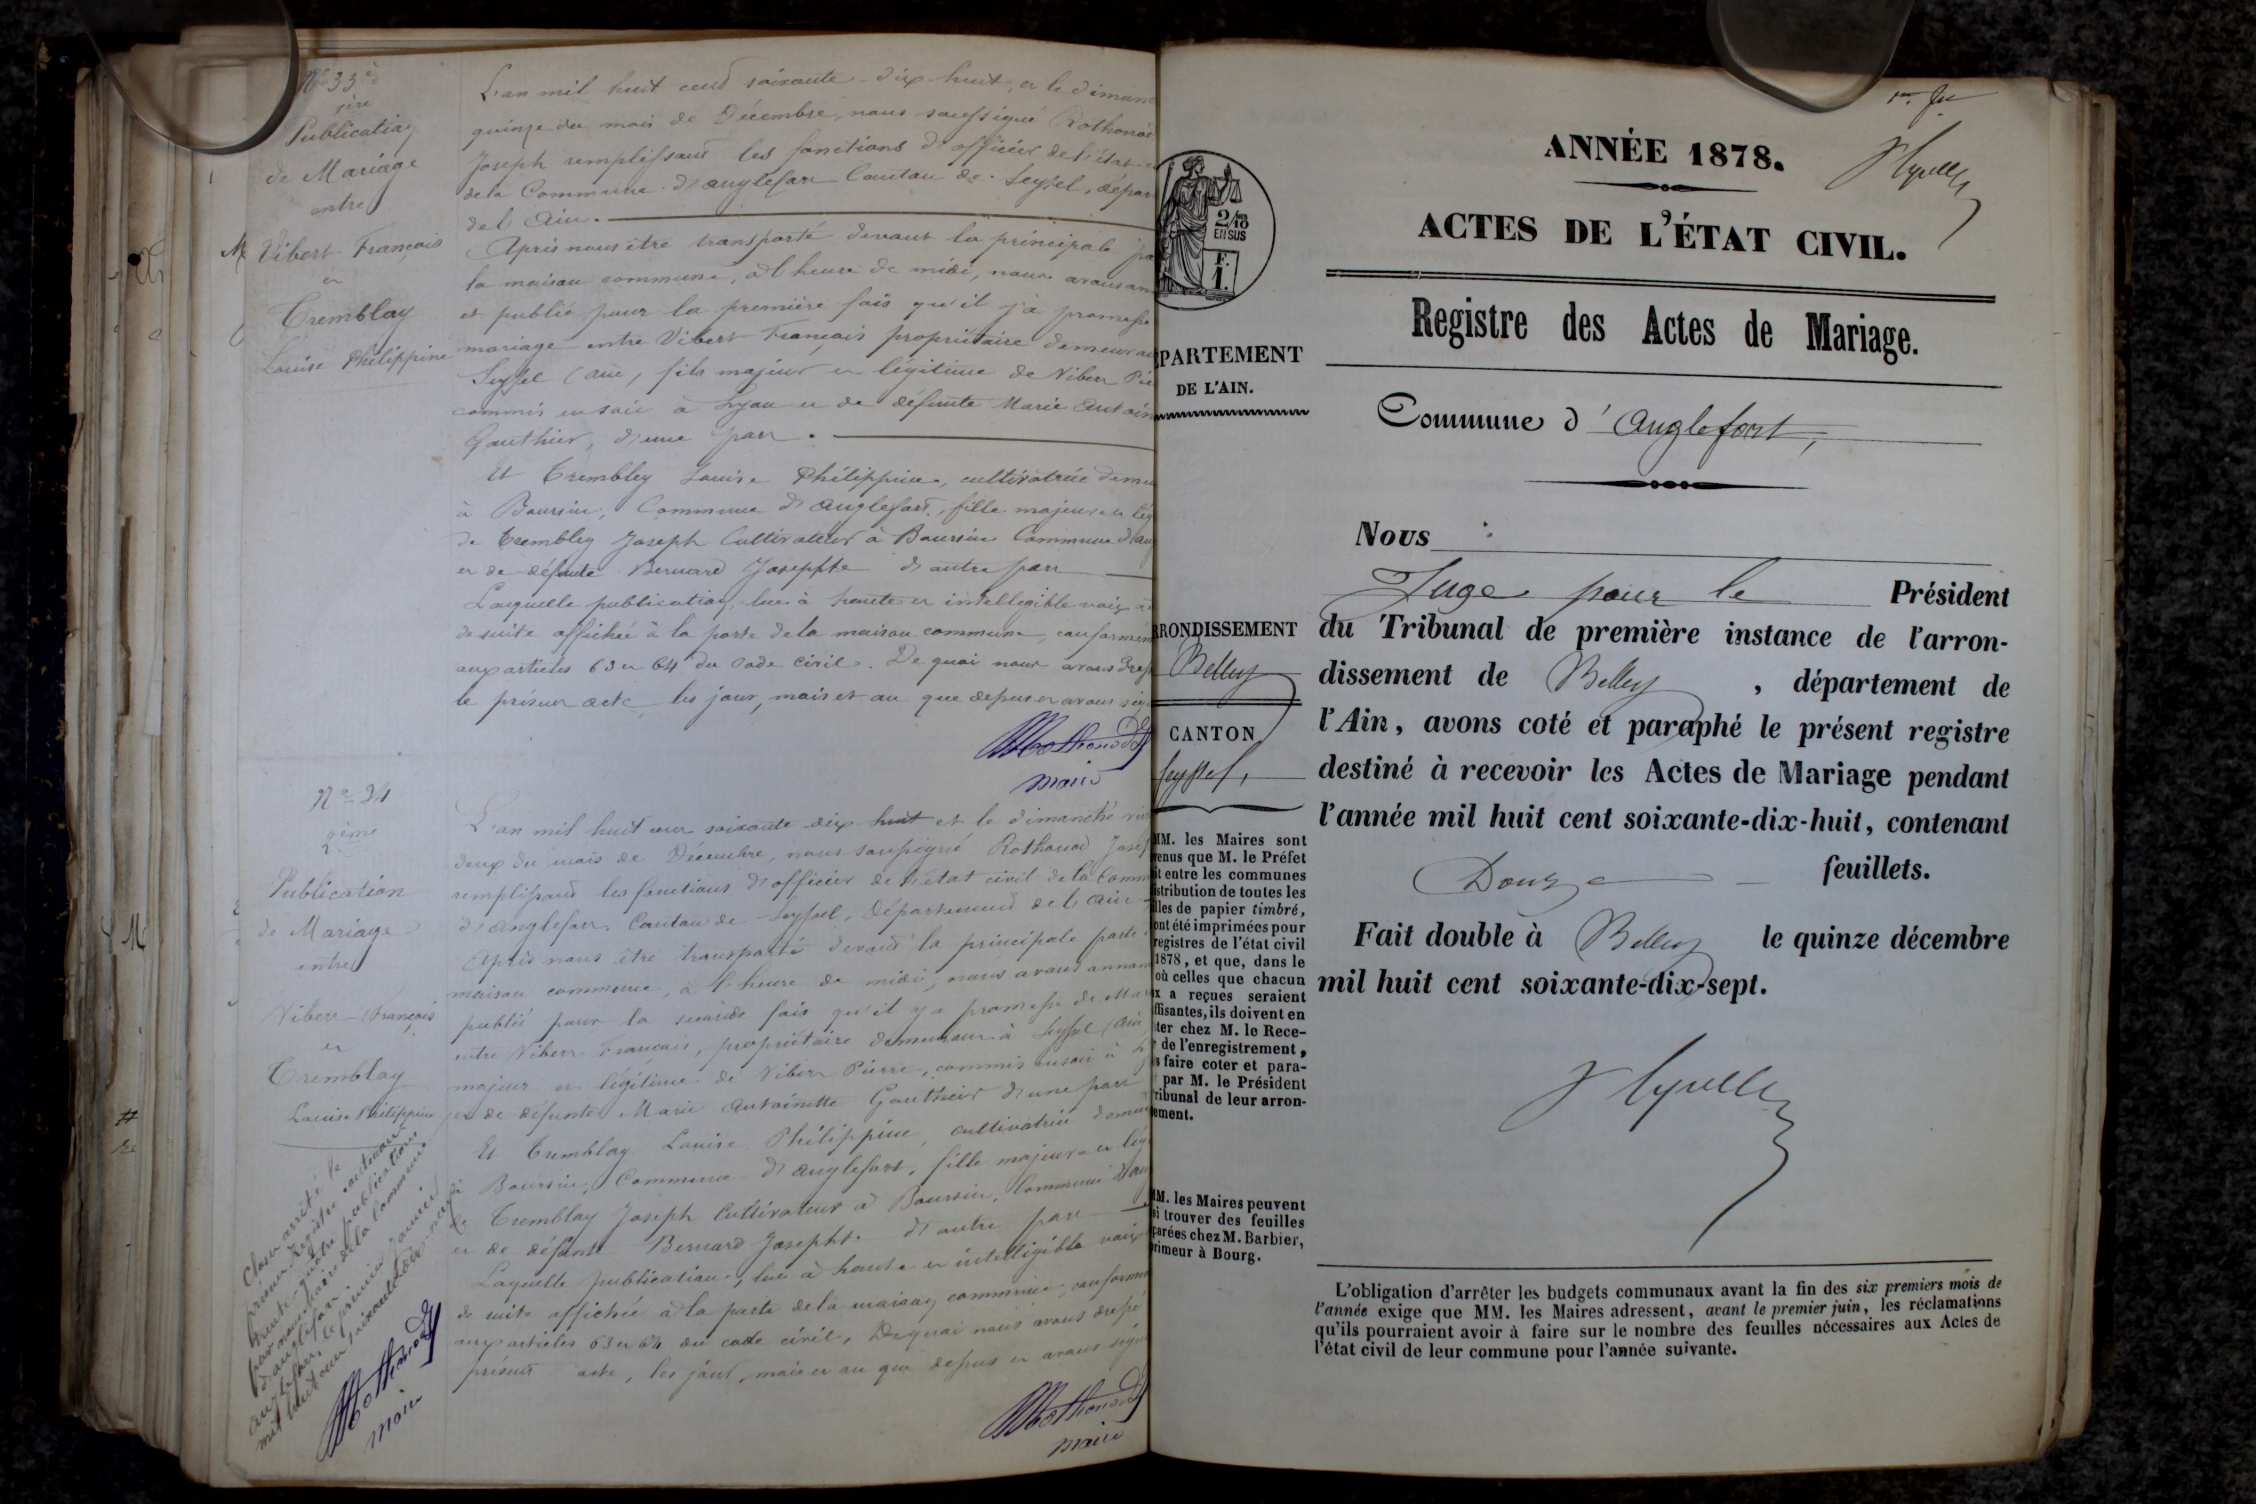 Nº 33
1ère
Publication
de Mariage
entre
Vibert François
et
Tremblay
Louise Philippine
L'an mil huit cent soixante-dix-huit, et le diman
quinze du mois de Décembre, nous soussigné Rothonod
Joseph remplissant les fonctions d'officier de l'état
de la Commune d'Anglefort Canton de Seyssel, dépar
de l'Ain.
Après nous être transporté devant la principale
la maison commune, à l'heure de midi, nous avons an
et publié pour la première fois qu'il y a promesse
mariage entre Vibert François propriétaire demeura
Seyssel (Ain, fils majeur et légitime de Vibert Pie
commis en soie à Lyon et de défunte Marie Antoin
Gauthier, d'une part.
Et Trembley Louise Philippine, cultivatrice deme
à Boursin, Commune d'Anglefort, fille majeure et lég
de Trembley Joseph Cultivateur à Boursin Commune d'An
et de défunte Bernard Josephte d'autre part
Laquelle publication, lue à haute et intellegible voix a
de suite affichée à la porte de la maison commune, conformem
aux articles 63 et 64 du Code civil. De quoi nous avons dress
le présent acte les jour, mois et an que dessus et avons sig
Rothonod
maire
Nº 34
2ème
Publication
de Mariage
entre
Vibert François
et
Tremblay
Louise Philippine
L'an mil huit cent soixante dix huit et le dimanche vin
deux du mois de Décembre, nous soussigné Rothonod Josep
remplissant les fonctions d'officier de l'état civil de la Comm
d'Anglefort Canton de Seyssel, Département de l'Ain
Après nous être transporté devant la principale porte
maison commune, à l'heure de midi, nous avons annon
publié pour la seconde fois qu'il y a promesse de Mar
entre Vibert François, propriétaire demeurant à Seyssel (Ain
majeur et légitime de Vibert Pierre, commis en soie à
et de défunte Marie Antoinette Gauthier d'une part
Et Tremblay Louise Philippine, cultivatrice demeu
Boursin, Commune d'Anglefort, fille majeure et lég
de Tremblay Joseph Cultivateur à Boursin, Commune d'An
et de défunte Bernard Josephte d'autre part
Laquelle publication, lue à haute et intelligible voix
de suite affichée à la porte de la maison commune, conformé
aux articles 63 et 64 du code civil, De quoi nous avons dressé
présent acte, les jour, mois et an que dessus et avons signé
Rothonod
maire
Clos et arrêté le
présent Registre contenant
trente quatre publications
par nous maire de la Commune
d'Anglefort
Anglefort, le premier janvier
mil huit cent soixante dix-neuf
Rothonod
maire
2/10
EN SUS
F.
1.
PARTEMENT
DE L'AIN.
RRONDISSEMENT
Belley
CANTON
Seyssel,
MM. les Maires sont
venus que M. le Préfet
it entre les communes
istribution de toutes les
illes de papier timbré,
ont été imprimées pour
registres de l'état civil
1878, et que, dans le
où celles que chacun
x a reçues seraient
ffisantes, ils doivent en
ter chez M. le Rece-
de l'enregistrement,
s faire coter et para-
par M. le Président
ribunal de leur arron-
ement.
MM. les Maires peuvent
si trouver des feuilles
parées chez M. Barbier,
rimeur à Bourg.
ANNÉE 1878.
ACTES DE L'ÉTAT CIVIL.
Registre des Actes de Mariage.
Commune d'Anglefort,
Nous
Juge pour le Président
du Tribunal de première instance de l'arron-
dissement de Belley, département de
l'Ain, avons coté et paraphé le présent registre
destiné à recevoir les Actes de Mariage pendant
l'année mil huit cent soixante-dix-huit, contenant
Douze feuillets.
Fait double à Belley le quinze décembre
mil huit cent soixante-dix-sept.
L'obligation d'arrêter les budgets communaux avant la fin des six premiers mois de
l'année exige que MM. les Maires adressent, avant le premier juin, les réclamations
qu'ils pourraient avoir à faire sur le nombre des feuilles nécessaires aux Actes de
l'état civil de leur commune pour l'année suivante.